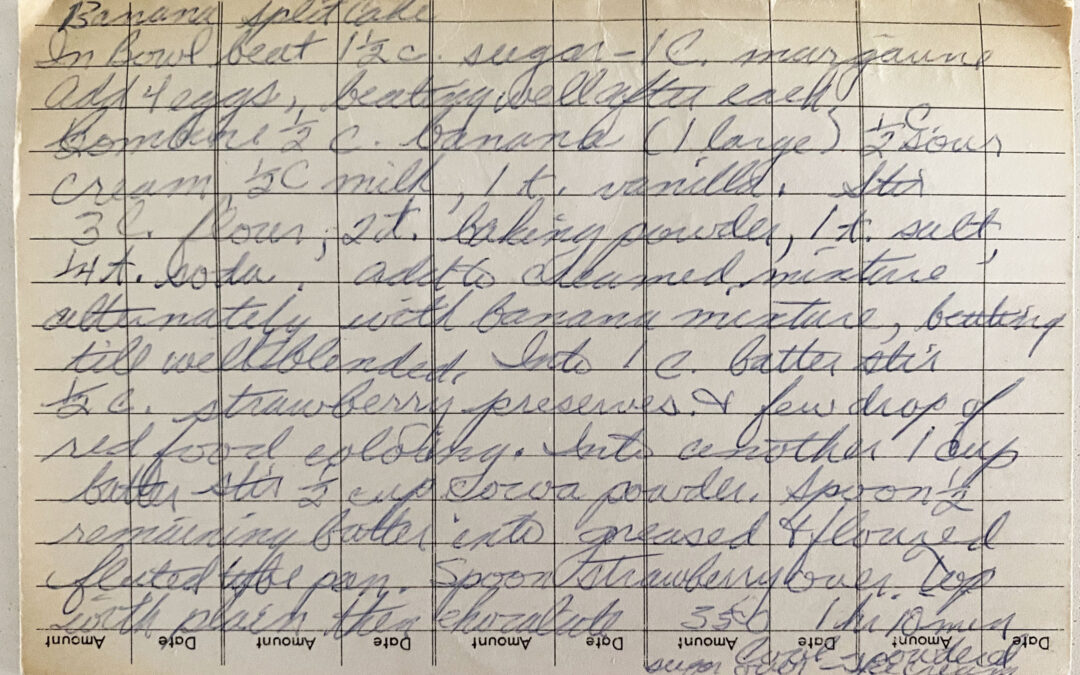 Banana Split Cake
In Bowl beat 1 1/2 c. sugar - 1 C. margarine
Add 4 eggs, beating well after each
Combine 1/2 c. banana (1 large) 1/2 C. sour
cream, 1/2 C milk, 1 t. vanilla. Stir
3 C. flour, 2 t. baking powder, 1 t. salt,
1/4 t. soda. Add to creamed mixture
alternately with banana mixture, beating
till well blended. Into 1 c. batter stir
1/2 c. strawberry preserves & few drop of
red food coloring. Into another 1 cup
batter stir 1/2 cup cocoa powder. Spoon 1/2
remaining batter into greased & floured
fluted tube pan. Spoon strawberry over. Top
with plain then chocolate 350 1 hr 10 min
Amount Date Amount Date Amount Date Amount Date Amount Date
Cool - powdered
sugar over - ice cream